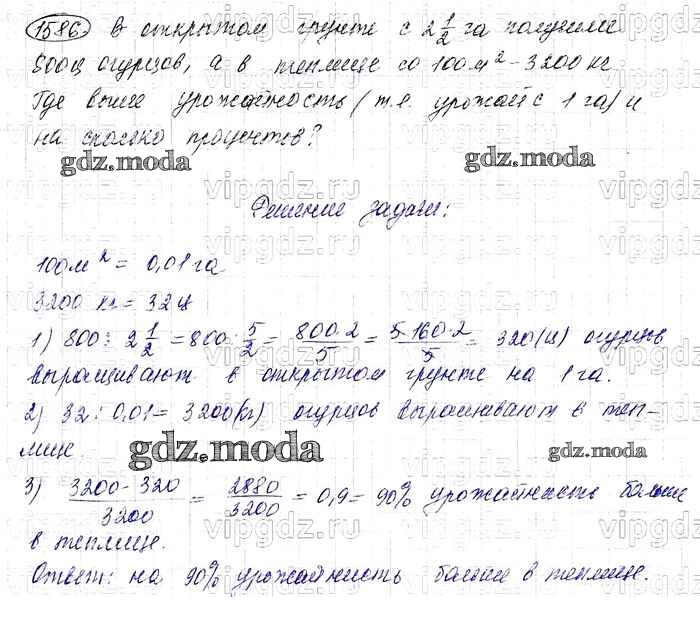 1586. В открытом грунте с 2 1/2 га получили
800ц огурцов, а в теплице со 100м² - 3200 кг
Где выше урожайность (т.е. урожай с 1 га) и
на сколько процентов?
gdz.moda
gdz.moda
Решение задачи:
100м² = 0,01 га
3200 кг = 32 ц
1) 800 : 2 1/2 = 800 · 5/2 = 800·2/5 = 5·160·2/5 = 320(ц) огурцов
выращивают в открытом грунте на 1 га.
2) 32 : 0,01 = 3200(кг) огурцов выращивают в теп-
лице.
gdz.moda
gdz.moda
3) 3200-320/3200 = 2880/3200 = 0,9 = 90% урожайность больше
в теплице.
Ответ: на 90% урожайность больше в теплице.
vipgdz.ru